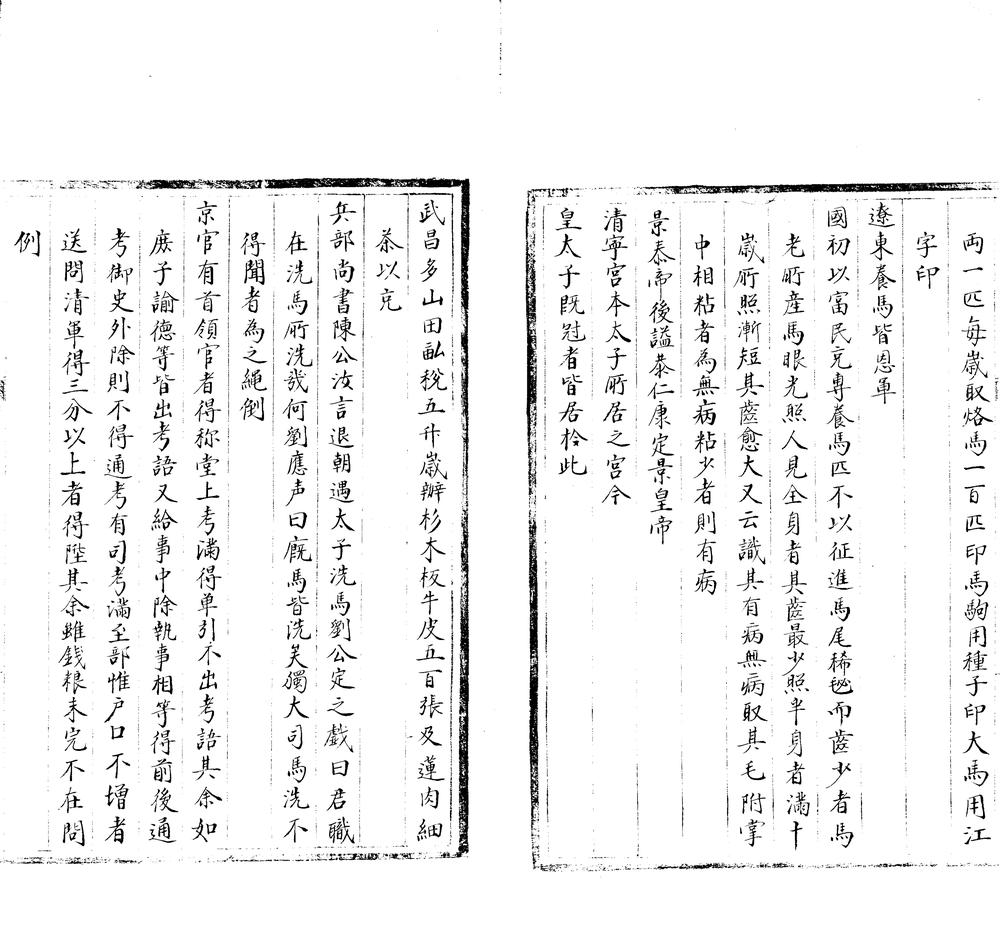 両一匹每歳取烙馬一百匹印馬駒用種子印大馬用江
字印
遼東養馬皆恩軍
國初以富民充專養馬匹不以征進馬尾稀毯而齒少者馬
老所産馬眼光照人見全身者其齒最少照半身者滿十
歲所照漸短其齒愈大又云識其有病無病取其毛附掌
中相粘者為無病粘少者則有病
景泰帝後謚恭仁康定景皇帝
清寧宮本太子所居之宮今
皇太子既冠者皆居扵此
武昌多山田畝稅五升歲辦杉木板牛皮五百張及蓮肉細
茶以充
兵部尚書陳公汝言退朝遇太子洗馬劉公定之戲曰君職
在洗馬所洗幾何劉應声曰廐馬皆洗矣獨大司馬洗不
得聞者為之繩倒
京官有首領官者得称堂上考滿得单引不出考語其余如
庶子諭德等皆出考語又給事中除執事相等得前後通
考御史外除則不得通考有司考滿至部惟户口不增者
送問清軍得三分以上者得陞其余雖錢粮未完不在問
例